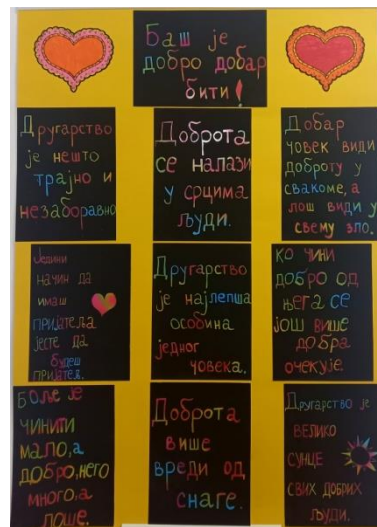 Баш је
добро добар
бити!
Другарство
је нешто
трајно и
незаборавно
Доброта
се налази
у срцима
људи.
Добар
човек види
доброту у
свакоме, а
лош види у
свему зло.
Једини
начин да
имаш
пријатеља
јесте да
будеш
пријатељ.
Другарство
је најлепша
особина
једног
човека.
Ко чини
добро од
њега се
још више
добра
очекује.
Боље је
чинити
мало, а
добро, него
много, а
лоше.
Доброта
више
вреди од
снаге.
Другарство је
велико
сунце
свих добрих
људи.